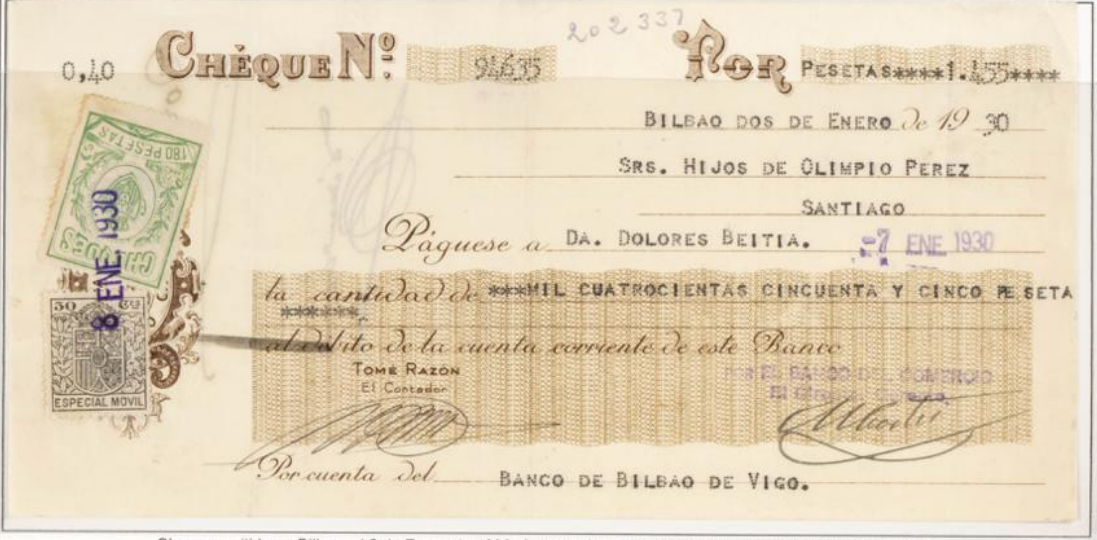 202 337
0,40 CHÈQUE Nº: 94635 POR PESETAS****1.455****
BILBAO DOS DE ENERO de 19 30
SRS. HIJOS DE OLIMPIO PEREZ
SANTIAGO
Páguese a DA. DOLORES BEITIA.
-7 ENE 1930
la cantidad de ***MIL CUATROCIENTAS CINCUENTA Y CINCO PESETA
******
al débito de la cuenta corriente de este Banco
TOMÉ RAZÓN
El Contador
POR EL BANCO DEL COMERCIO
Por cuenta del BANCO DE BILBAO DE VIGO.
180 PESETAS
CHEQUES
8 ENE. 1930
30
ESPECIAL MOVIL